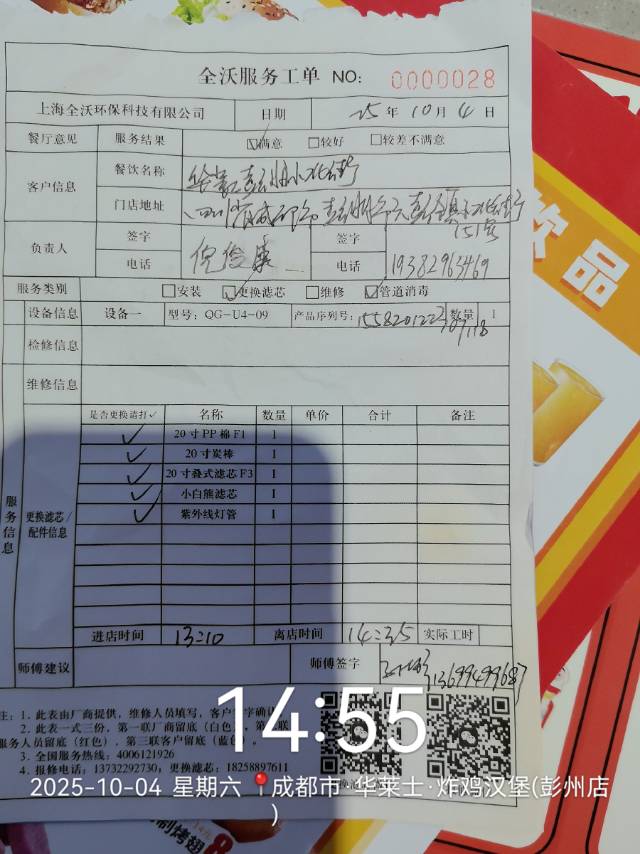 全沃服务工单 NO: 0000028
上海全沃环保科技有限公司 日期 25年10月4日
餐厅意见 服务结果 ☑满意 □较好 □较差不满意
客户信息 餐饮名称
门店地址 四川省成都市彭州市
151号
负责人 签字 签字
电话 电话 19382963469
服务类别 □安装 ☑更换滤芯 □维修 ☑管道消毒
设备信息 设备一 型号: QG-U4-09 产品序列号: 数量 1
检修信息
维修信息
服务信息
更换滤芯/配件信息
是否更换请打✓ 名称 数量 单价 合计 备注
✓ 20寸PP棉F1 1
✓ 20寸炭棒 1
✓ 20寸叠式滤芯F3 1
✓ 小白熊滤芯 1
✓ 紫外线灯管 1
进店时间 13:10 离店时间 14:35 实际工时
师傅建议 师傅签字 13699499687
注: 1. 此表由厂商提供, 维修人员填写, 客户签字确认
2. 此表一式三份, 第一联厂商留底(白色),
服务人员留底(红色), 第三联客户留底(蓝色)。
3. 全国服务热线: 4006121926
4. 报修电话: 13732292730, 更换滤芯: 18258897611
14:55
2025-10-04 星期六 成都市·华莱士·炸鸡汉堡(彭州店
)
饮品
制烤翅